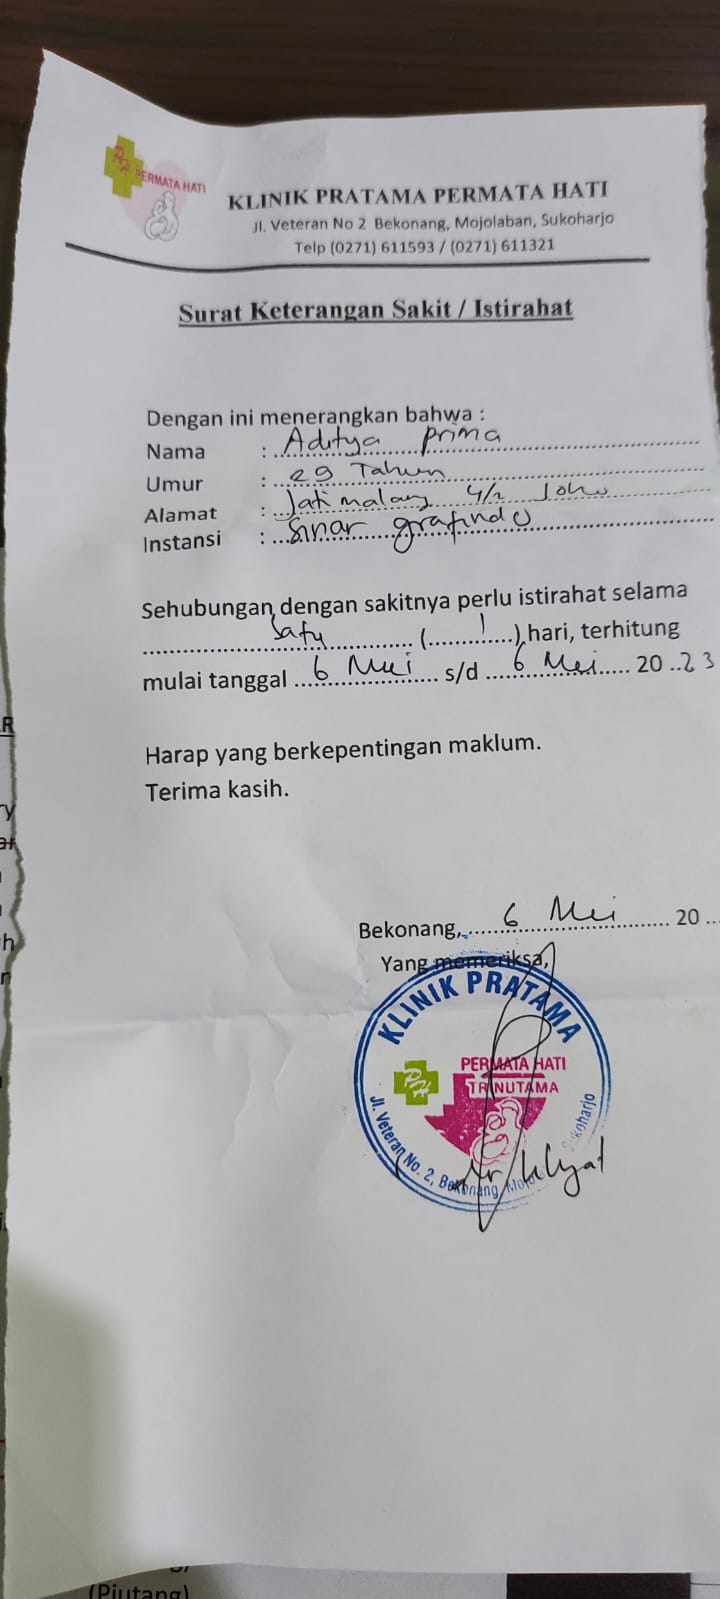 PH PERMATA HATI
KLINIK PRATAMA PERMATA HATI
Jl. Veteran No 2 Bekonang, Mojolaban, Sukoharjo
Telp (0271) 611593 / (0271) 611321
Surat Keterangan Sakit / Istirahat
Dengan ini menerangkan bahwa :
Nama : Aditya prima
Umur : 29 Tahun
Alamat : Jatimalang 4/2 Joho
Instansi : Sinar grafindo
Sehubungan dengan sakitnya perlu istirahat selama
Satu (1) hari, terhitung
mulai tanggal 6 Mei s/d 6 Mei 20 23
Harap yang berkepentingan maklum.
Terima kasih.
Bekonang, 6 Mei 20
Yang memeriksa,
KLINIK PRATAMA
PERMATA HATI
PH TRINUTAMA
Jl. Veteran No. 2, Bekonang, Sukoharjo
dr
(Piutang)